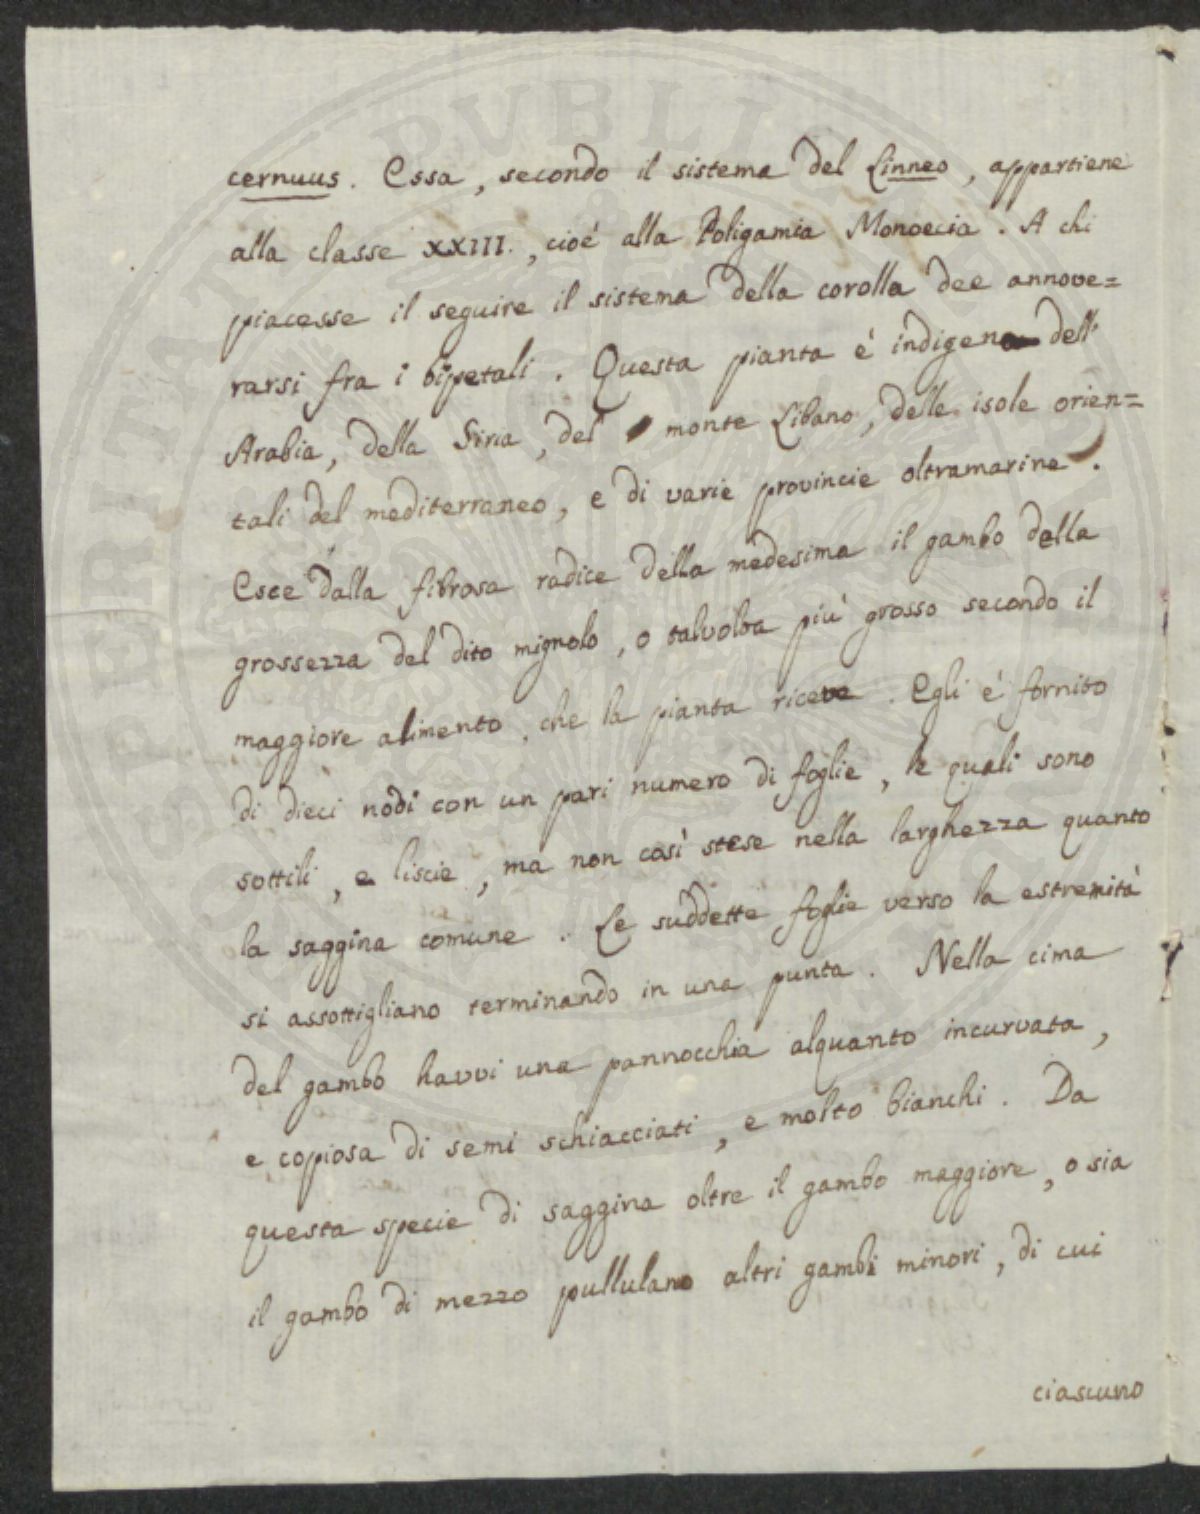 cernuus. Essa, secondo il sistema del Linneo, appartiene
alla classe XXIII., cioè alla Poligamia Monoecia. A chi
piacesse il seguire il sistema della corolla dee annove=
rarsi fra i bipetali. Questa pianta è indigena dell'
Arabia, della Siria, del monte Libano, delle isole orien=
tali del mediterraneo, e di varie provincie oltramarine.
Esce dalla fibrosa radice della medesima il gambo della
grossezza del dito mignolo, o talvolta più grosso secondo il
maggiore alimento, che la pianta riceve. Egli è fornito
di dieci nodi con un pari numero di foglie, le quali sono
sottili, e liscie, ma non così stese nella larghezza quanto
la saggina comune. Le suddette foglie verso la estremità
si assottigliano terminando in una punta. Nella cima
del gambo havvi una pannocchia alquanto incurvata,
e copiosa di semi schiacciati, e molto bianchi. Da
questa specie di saggina oltre il gambo maggiore, o sia
il gambo di mezzo pullulano altri gambi minori, di cui
ciascuno